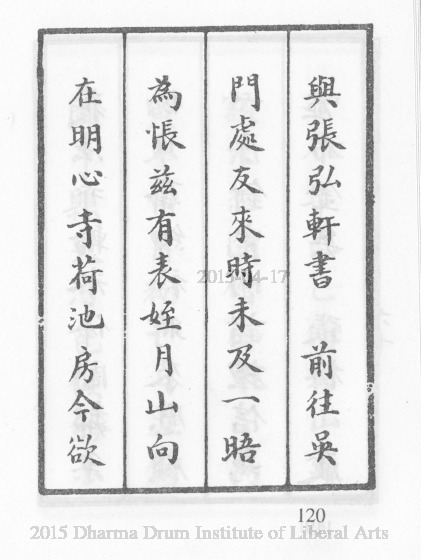 與張弘軒書　前往吳
門處友來時未及一晤
為悵茲有表姪月山向
在明心寺荷池房今欲
2015-04-17
120
2015 Dharma Drum Institute of Liberal Arts